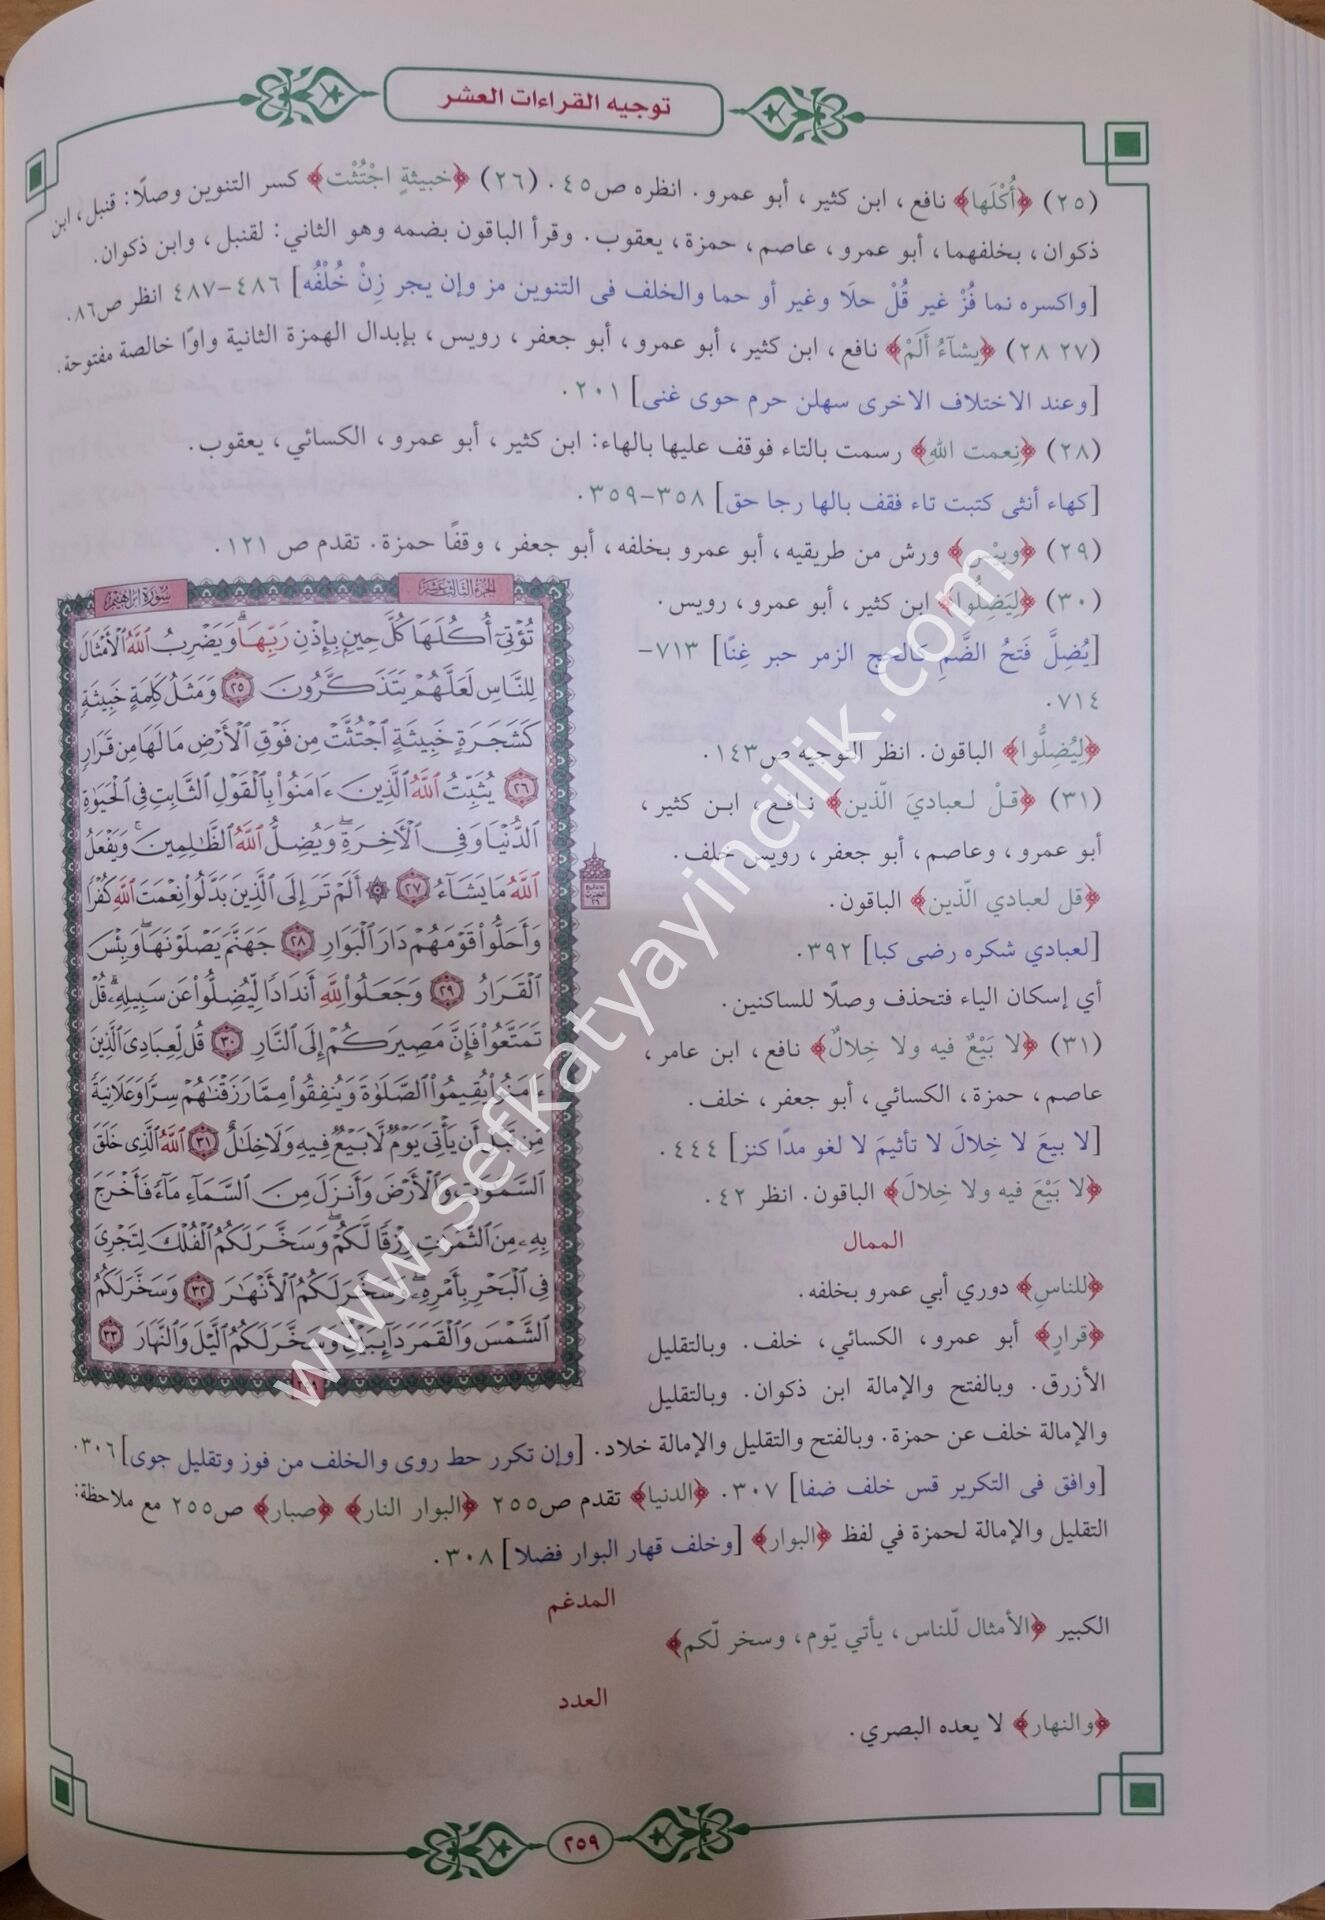 توجيه القراءات العشر
(٢٥) ﴿أُكْلَها﴾ نافع، ابن كثير، أبو عمرو. انظره ص٤٥. (٢٦) ﴿خبيثةٍ اجْتُثْت﴾ كسر التنوين وصلًا: قنبل، ابن
ذكوان، بخلفهما، أبو عمرو، عاصم، حمزة، يعقوب. وقرأ الباقون بضمه وهو الثاني: لقنبل، وابن ذكوان.
[واكسره نما فُزْ غير قُلْ حلَا وغير أو حما والخلف فى التنوين مز وإن يجر زِنْ خُلْفُه] ٤٨٦-٤٨٧ انظر ص٨٦.
(٢٧ ٢٨) ﴿يشآءُ أَلَمْ﴾ نافع، ابن كثير، أبو عمرو، أبو جعفر، رويس، بإبدال الهمزة الثانية واوًا خالصة مفتوحة.
[وعند الاختلاف الاخرى سهلن حرم حوى غنى] ٢٠١.
(٢٨) ﴿نِعمت اللهِ﴾ رسمت بالتاء فوقف عليها بالهاء: ابن كثير، أبو عمرو، الكسائي، يعقوب.
[كهاء أنثى كتبت تاء فقف بالها رجا حق] ٣٥٨-٣٥٩.
(٢٩) ﴿وبيْس﴾ ورش من طريقيه، أبو عمرو بخلفه، أبو جعفر، وقفًا حمزة. تقدم ص ١٢١.
(٣٠) ﴿لِيَضِلُّوا﴾ ابن كثير، أبو عمرو، رويس.
[يُضِلَّ فَتحُ الضَّمِ كالحج الزمر حبر غِنًا] ٧١٣-
٧١٤.
﴿لِيُضِلُّوا﴾ الباقون. انظر التوجيه ص١٤٣.
(٣١) ﴿قلْ لعباديَ الّذين﴾ نافع، ابن كثير،
أبو عمرو، وعاصم، أبو جعفر، رويس خلف.
﴿قل لعبادي الّذين﴾ الباقون.
[لعبادي شكره رضى كبا] ٣٩٢.
أي إسكان الياء فتحذف وصلًا للساكنين.
(٣١) ﴿لا بَيْعٌ فيه ولا خِلالٌ﴾ نافع، ابن عامر،
عاصم، حمزة، الكسائي، أبو جعفر، خلف.
[لا بيعَ لا خِلالَ لا تأثيمَ لا لغو مدًا كنز] ٤٤٤.
﴿لا بَيْعَ فيه ولا خلالَ﴾ الباقون. انظر ٤٢.
الممال
﴿للناسِ﴾ دوري أبي عمرو بخلفه.
﴿قرارٍ﴾ أبو عمرو، الكسائي، خلف. وبالتقليل
الأزرق. وبالفتح والإمالة ابن ذكوان. وبالتقليل
والإمالة خلف عن حمزة. وبالفتح والتقليل والإمالة خلاد. [وإن تكرر حط روى والخلف من فوز وتقليل جوى] ٣٠٦.
[وافق فى التكرير قس خلف ضفا] ٣٠٧. ﴿الدنيا﴾ تقدم ص٢٥٥ ﴿البوار النار﴾ ﴿صبار﴾ ص٢٥٥ مع ملاحظة:
التقليل والإمالة لحمزة في لفظ ﴿البوار﴾ [وخلف قهار البوار فضلا] ٣٠٨.
المدغم
الكبير ﴿الأمثال لّلناس، يأتي يّوم، وسخر لّكم﴾
العدد
﴿والنهار﴾ لا يعده البصري.
٢٥٩
سورة ابراهيم
الجزء الثالث عشر
تُؤْتِىٓ أُكُلَهَا كُلَّ حِينٍۭ بِإِذْنِ رَبِّهَاۗ وَيَضْرِبُ ٱللَّهُ ٱلْأَمْثَالَ
لِلنَّاسِ لَعَلَّهُمْ يَتَذَكَّرُونَ ٢٥ وَمَثَلُ كَلِمَةٍ خَبِيثَةٍ
كَشَجَرَةٍ خَبِيثَةٍ ٱجْتُثَّتْ مِن فَوْقِ ٱلْأَرْضِ مَا لَهَا مِن قَرَارٍ
٢٦ يُثَبِّتُ ٱللَّهُ ٱلَّذِينَ ءَامَنُوا۟ بِٱلْقَوْلِ ٱلثَّابِتِ فِى ٱلْحَيَوٰةِ
ٱلدُّنْيَا وَفِى ٱلْأَخِرَةِۖ وَيُضِلُّ ٱللَّهُ ٱلظَّٰلِمِينَۚ وَيَفْعَلُ
ٱللَّهُ مَا يَشَآءُ ٢٧ ۞ أَلَمْ تَرَ إِلَى ٱلَّذِينَ بَدَّلُوا۟ نِعْمَتَ ٱللَّهِ كُفْرًا
وَأَحَلُّوا۟ قَوْمَهُمْ دَارَ ٱلْبَوَارِ ٢٨ جَهَنَّمَ يَصْلَوْنَهَاۖ وَبِئْسَ
ٱلْقَرَارُ ٢٩ وَجَعَلُوا۟ لِلَّهِ أَندَادًا لِّيُضِلُّوا۟ عَن سَبِيلِهِۦۗ قُلْ
تَمَتَّعُوا۟ فَإِنَّ مَصِيرَكُمْ إِلَى ٱلنَّارِ ٣٠ قُل لِّعِبَادِىَ ٱلَّذِينَ
ءَامَنُوا۟ يُقِيمُوا۟ ٱلصَّلَوٰةَ وَيُنفِقُوا۟ مِمَّا رَزَقْنَٰهُمْ سِرًّا وَعَلَانِيَةً
مِّن قَبْلِ أَن يَأْتِىَ يَوْمٌ لَّا بَيْعٌ فِيهِ وَلَا خِلَٰلٌ ٣١ ٱللَّهُ ٱلَّذِى خَلَقَ
ٱلسَّمَٰوَٰتِ وَٱلْأَرْضَ وَأَنزَلَ مِنَ ٱلسَّمَآءِ مَآءً فَأَخْرَجَ
بِهِۦ مِنَ ٱلثَّمَرَٰتِ رِزْقًا لَّكُمْۖ وَسَخَّرَ لَكُمُ ٱلْفُلْكَ لِتَجْرِىَ
فِى ٱلْبَحْرِ بِأَمْرِهِۦۖ وَسَخَّرَ لَكُمُ ٱلْأَنْهَٰرَ ٣٢ وَسَخَّرَ لَكُمُ
ٱلشَّمْسَ وَٱلْقَمَرَ دَآئِبَيْنِۖ وَسَخَّرَ لَكُمُ ٱلَّيْلَ وَٱلنَّهَارَ ٣٣
www.sefkatyayincilik.com